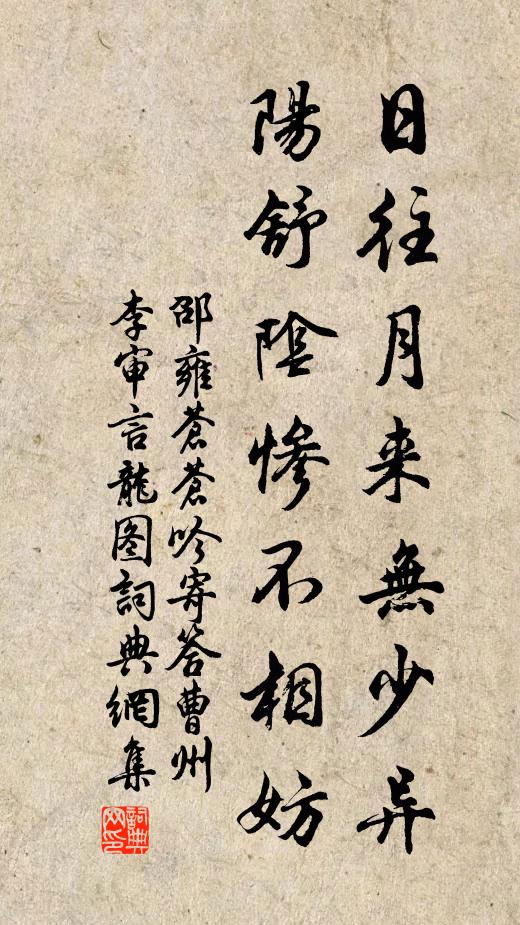 日往月来無少异
陽舒陰慘不相妨
邵雍蒼蒼吟寄答曹州
李审言龍图詞典網集
詞典网印